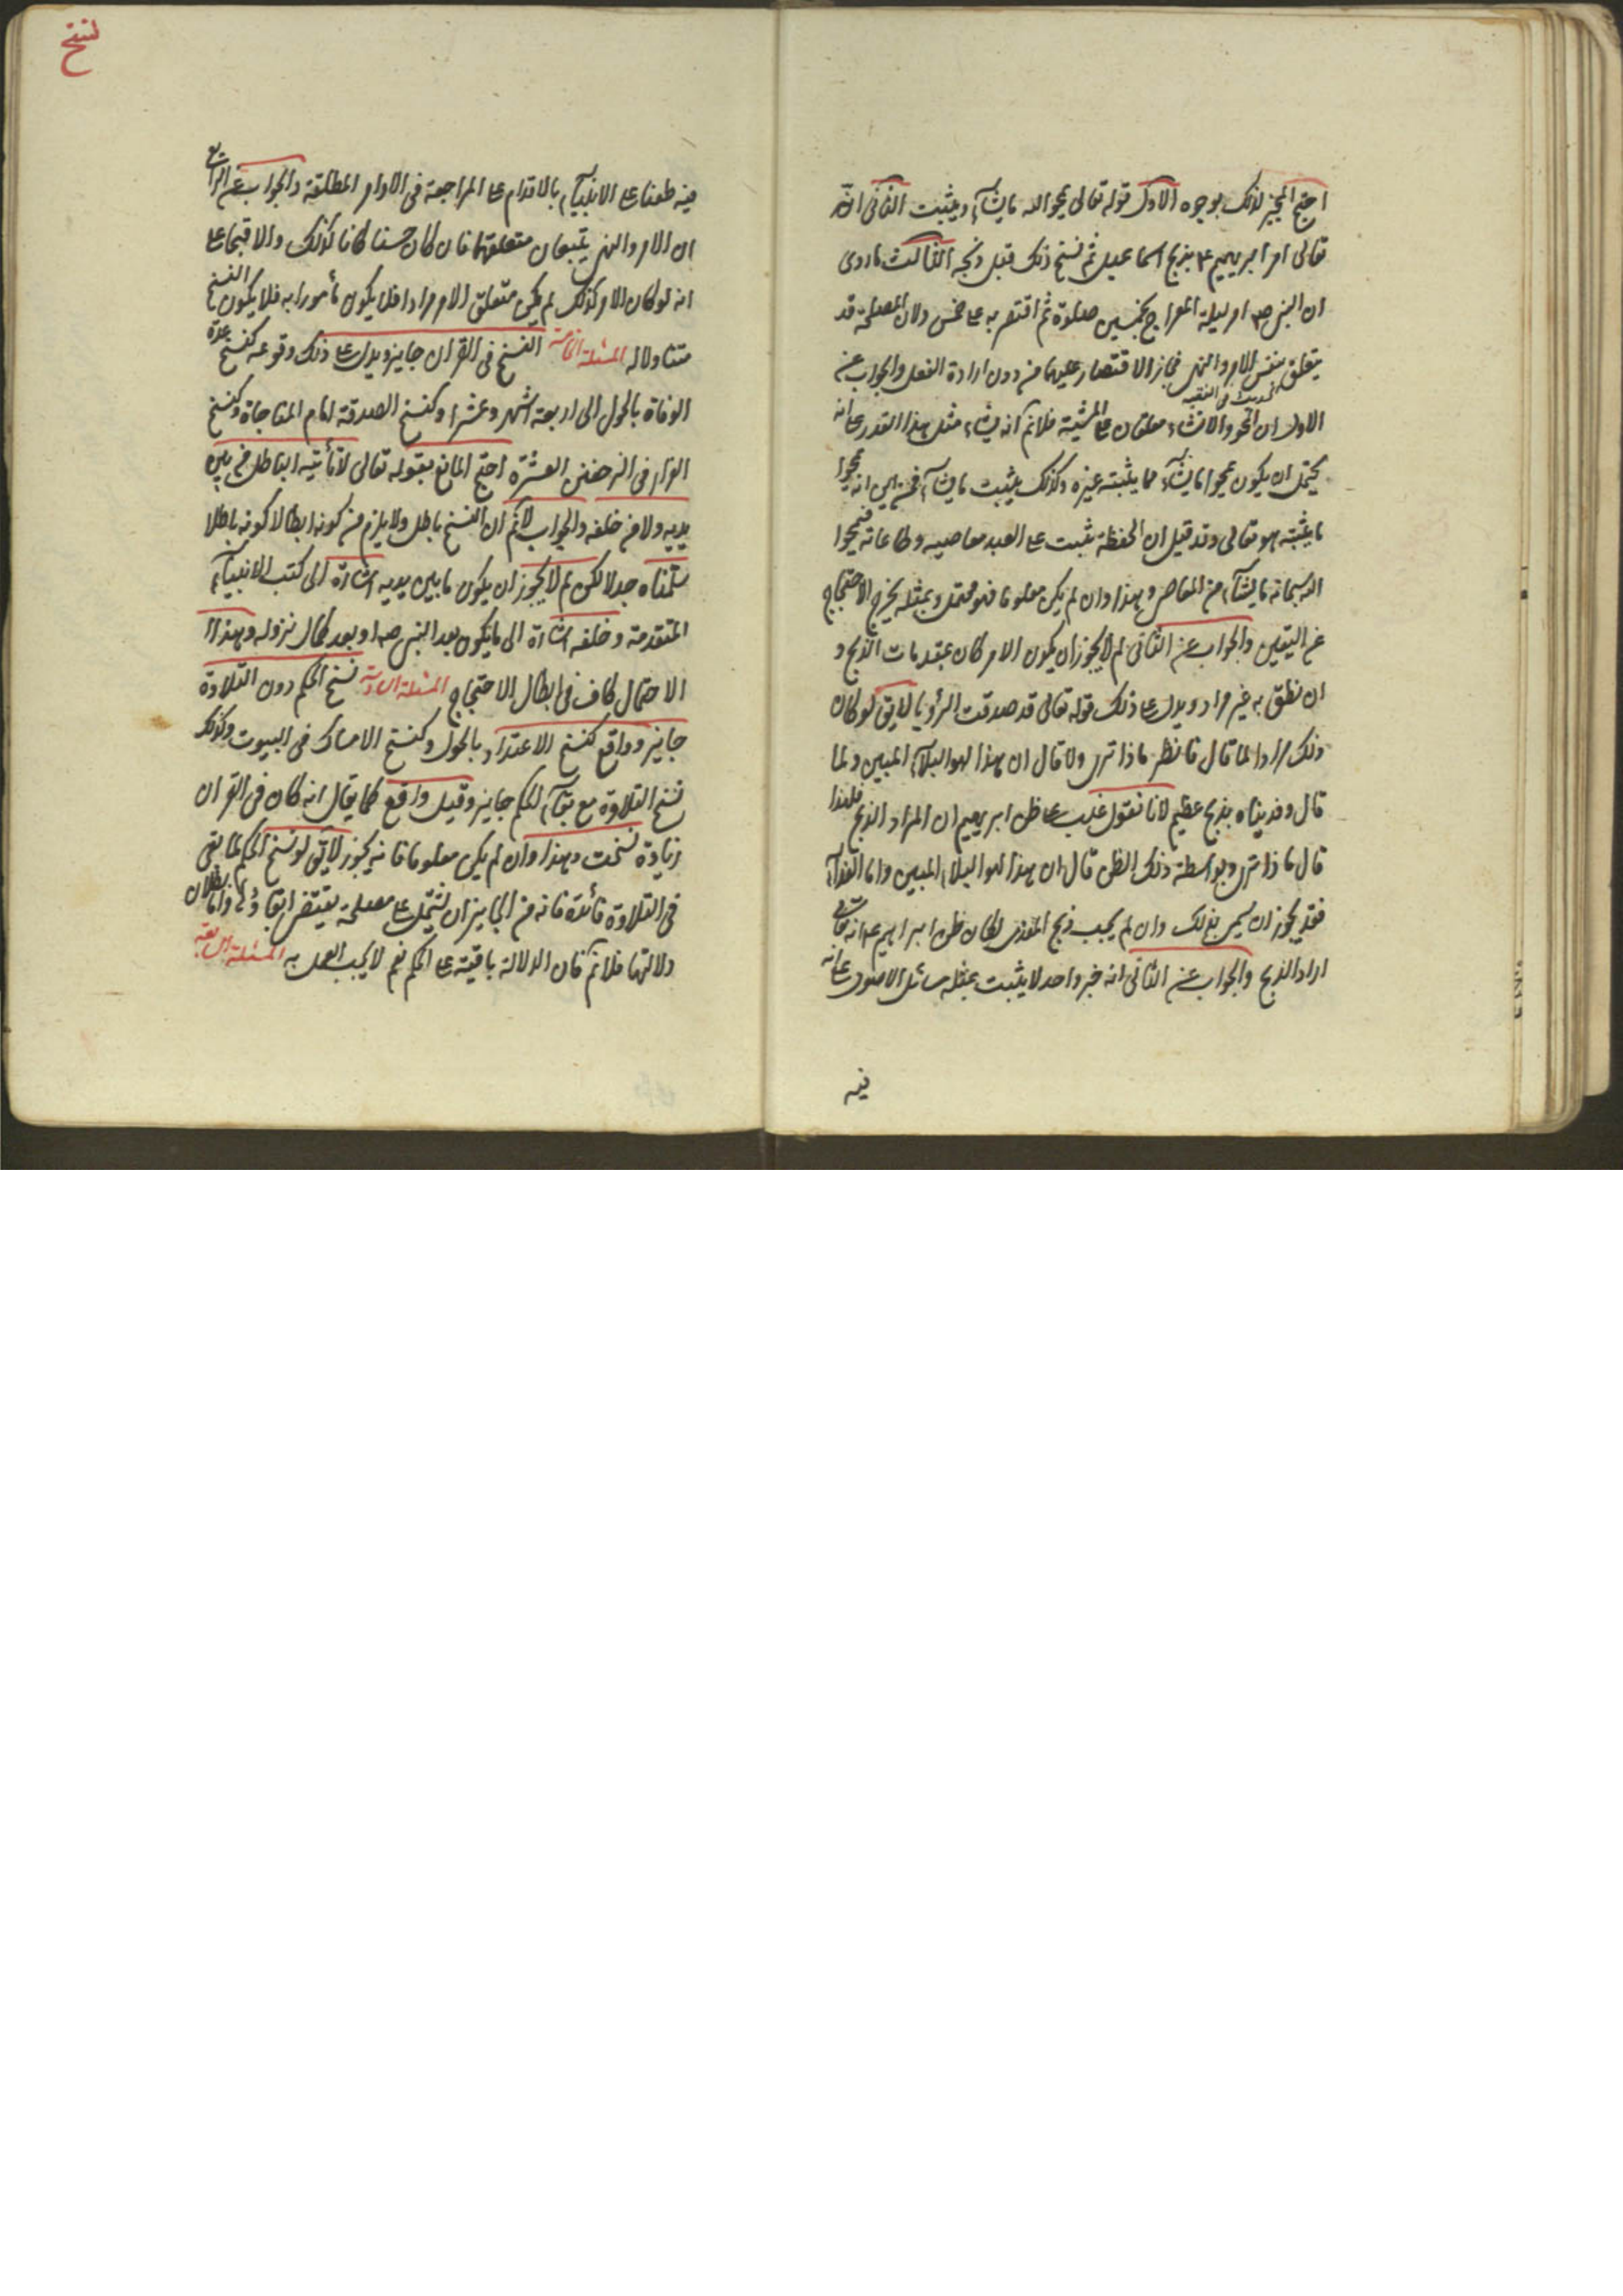 احتج المجيز لذلك بوجوه الاول قوله تعالى يمحوا الله ما يشآء ويثبت الثانى انه
تعالى امر ابرهيم ع بذبح اسماعيل ثم نسخ ذلك قبل ذبحه الثالث ما روى
ان النبى ص امر ليلة المعراج بخمسين صلوة ثم اقتصر به على خمس ولان المصلحة قد
يتعلق بنفس الامر والنهى فجاز الاقتصار عليهما من دون ارادة الفعل والجواب عن
الاول ان المحو والاثبات معلقان على المشية فلا نم انه يشاء مثل هذا القدر على انه
يحتمل ان يكون يمحوا ما يشآء مما يثبته غيره وكذلك يثبت ما يشآء فمن اين انه يمحوا
ما يثبته هو تعالى وقد قيل ان الحفظة تثبت على العبد معاصيه وطاعاته فيمحوا
الله سبحانه ما يشآء من المعاصى وهذا وان لم يكن معلوما فهو محتمل وبمثله يخرج الاحتجاج
عن اليقين والجواب عن الثانى لم لا يجوز ان يكون الامر كان بمقدمات الذبح و
ان نطق به غير مراد ويدل على ذلك قوله تعالى قد صدقت الرؤيا لا يق لو كان
ذلك مرادا لما قال فانظر ماذا ترى ولا قال ان هذا لهو البلآء المبين ولما
قال وفديناه بذبح عظيم لانا نقول غلب على ظن ابرهيم ان المراد الذبح فلهذا
قال ماذا ترى وبواسطة ذلك الظن قال ان هذا لهو البلاء المبين واما الفدآء
فقد يجوز ان يسمى بذلك وان لم يجب ذبح المفدى لمكان ظن ابراهيم ع انه تعالى
اراد الذبح والجواب عن الثانى انه خبر واحد لا يثبت بمثله مسائل الاصول على انه
فيه
نسخ
فيه طعنا على الانبيآء بالاقدام على المراجعة فى الاوامر المطلقة والجواب عن الرابع
ان الامر والنهى يتبعان متعلقهما فان كان حسنا كانا كذلك والا قبحا على
انه لو كان الامر كذلك لم يكن متعلق الامر مرادا فلا يكون مأمورا به فلا يكون النسخ
متناولا له المسئلة الخامسة النسخ فى القران جايز ويدل على ذلك وقوعه كنسخ عدة
الوفاة بالحول الى اربعة اشهر وعشرا وكنسخ الصدقة امام المناجاة وكنسخ
الفرار فى الزحف من العشرة احتج المانع بقوله تعالى لا تأتيه الباطل من بين
يديه ولا من خلفه والجواب لا نم ان النسخ باطل ولا يلزم من كونه ابطالا كونه باطلا
سلمناه جدلا لكن لم لا يجوز ان يكون ما بين يديه اشارة الى كتب الانبيآء
المتقدمة وخلفه اشارة الى ما يكون بعد النبى ص وبعد كمال نزوله وهذا
الاحتمال كاف فى ابطال الاحتجاج المسئلة السادسة نسخ الحكم دون التلاوة
جايز وواقع كنسخ الاعتداد بالحول وكنسخ الامساك فى البيوت وكذلك
نسخ التلاوة مع بقآء الحكم جايز وقيل واقع كما يقال انه كان فى القران
زيادة نسخت وهذا وان لم يكن معلوما فانه يجوز لا يق لو نسخ الحكم لما بقى
فى التلاوة فائدة فانه من الجايز ان يشتمل على مصلحة يقتضى ابقاؤها واما بطلان
دلالتها فلا نم فان الدلالة باقية على الحكم نعم لا يجب العمل به المسئلة السابعة